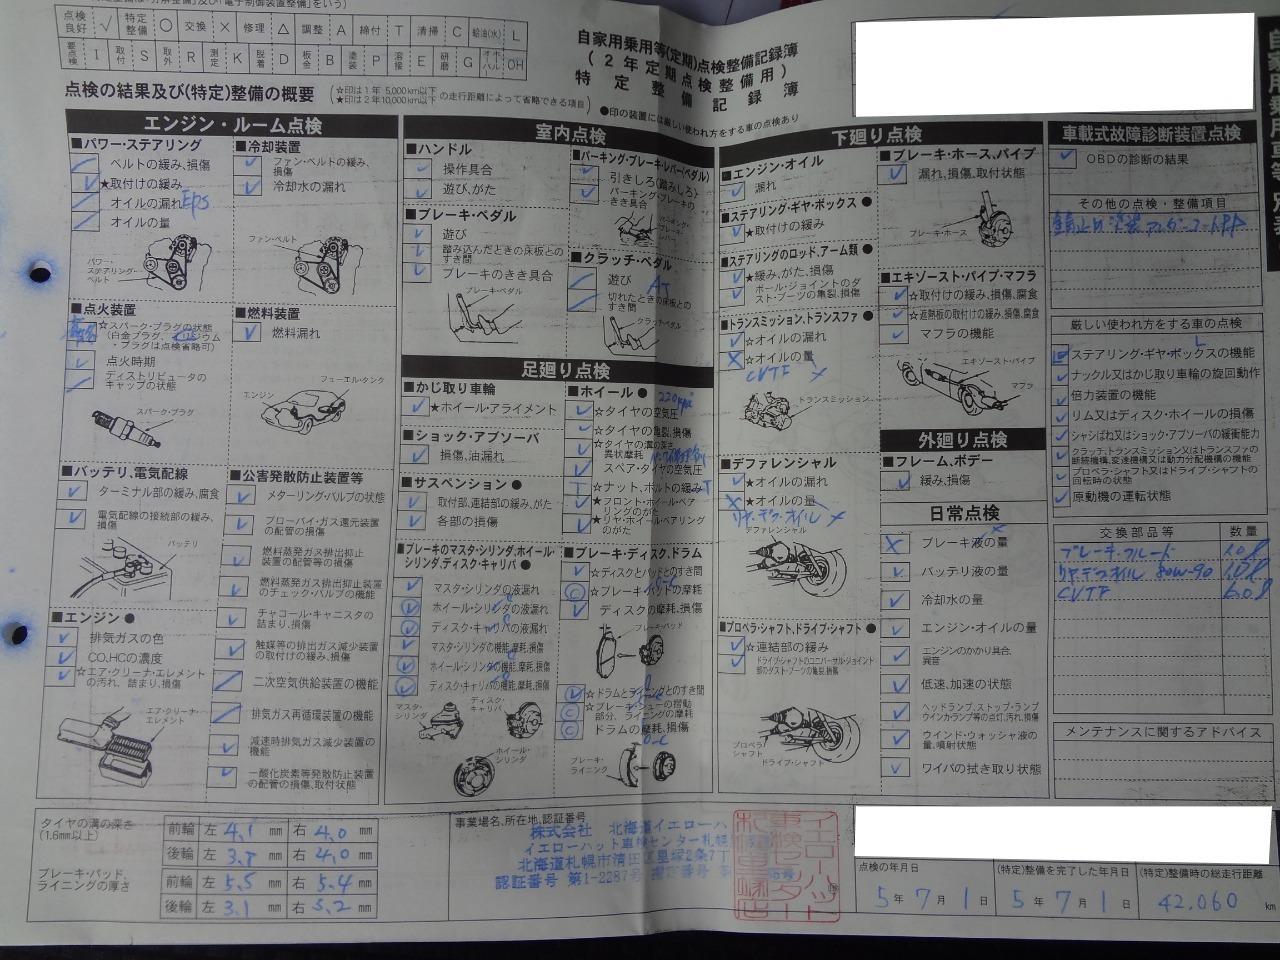 点検良好 √ 特定整備 ○ 交換 × 修理 △ 調整 A 締付 T 清掃 C 給油(水) L
要点検 I 取付 S 取外 R 測定 K 脱着 D 板金 B 塗装 P 溶接 E 研磨 G オーバーホール OH
自家用乗用等(定期)点検整備記録簿
(2年定期点検整備用)
特定整備記録簿
点検の結果及び(特定)整備の概要
☆印は1年 5,000km以下
★印は2年10,000km以下
の走行距離によって省略できる項目
●印の装置には厳しい使われ方をする車の点検あり
エンジン・ルーム点検
■パワー・ステアリング
ベルトの緩み、損傷
★取付けの緩み
オイルの漏れ EPS
オイルの量
パワー・ステアリング・ベルト
■冷却装置
ファン・ベルトの緩み、損傷
冷却水の漏れ
ファン・ベルト
■点火装置
☆スパーク・プラグの状態
(白金プラグ、イリジウム・プラグは点検省略可)
点火時期
ディストリビュータのキャップの状態
スパーク・プラグ
■燃料装置
燃料漏れ
フューエル・タンク
エンジン
■バッテリ、電気配線
ターミナル部の緩み、腐食
電気配線の接続部の緩み、損傷
バッテリ
■公害発散防止装置等
メターリング・バルブの状態
ブローバイ・ガス還元装置の配管の損傷
燃料蒸発ガス排出抑止装置の配管等の損傷
燃料蒸発ガス排出抑止装置のチェック・バルブの機能
チャコール・キャニスタの詰まり、損傷
触媒等の排出ガス減少装置の取付けの緩み、損傷
二次空気供給装置の機能
排気ガス再循環装置の機能
減速時排気ガス減少装置の機能
一酸化炭素等発散防止装置の配管の損傷、取付状態
■エンジン●
排気ガスの色
CO、HCの濃度
☆エア・クリーナ・エレメントの汚れ、詰まり、損傷
エア・クリーナ・エレメント
室内点検
■ハンドル
操作具合
遊び、がた
■ブレーキ・ペダル
遊び
踏み込んだときの床板とのすき間
ブレーキのきき具合
ブレーキ・ペダル
■パーキング・ブレーキ・レバー(ペダル)
引きしろ(踏みしろ)
パーキング・ブレーキのきき具合
パーキング・ブレーキ・レバー
■クラッチ・ペダル
遊び AT
切れたときの床板とのすき間
クラッチ・ペダル
足廻り点検
■かじ取り車輪
★ホイール・アライメント
■ショック・アブソーバ
損傷、油漏れ
■サスペンション●
取付部、連結部の緩み、がた
各部の損傷
■ホイール● 220kpa
☆タイヤの空気圧
☆タイヤの亀裂、損傷
☆タイヤの溝の深さ、異状摩耗
スペア・タイヤの空気圧
☆ナット、ボルトの緩み T
★フロント・ホイール・ベアリングのがた
★リヤ・ホイール・ベアリングのがた
■ブレーキのマスタ・シリンダ、ホイール・シリンダ、ディスク・キャリパ●
マスタ・シリンダの液漏れ
ホイール・シリンダの液漏れ
ディスク・キャリパの液漏れ
マスタ・シリンダの機能、摩耗、損傷
ホイール・シリンダの機能、摩耗、損傷
ディスク・キャリパの機能、摩耗、損傷
マスタ・シリンダ
ディスク・キャリパ
ホイール・シリンダ
■ブレーキ・ディスク、ドラム
☆ディスクとパッドとのすき間
☆ブレーキ・パッドの摩耗
ディスクの摩耗、損傷
ブレーキ・パッド
☆ドラムとライニングとのすき間
☆ブレーキ・シューの摺動部分、ライニングの摩耗
ドラムの摩耗、損傷
ブレーキ・ライニング
下廻り点検
■エンジン・オイル
漏れ
■ステアリング・ギヤ・ボックス●
★取付けの緩み
■ステアリングのロッド、アーム類●
★緩み、がた、損傷
ボール・ジョイントのダスト・ブーツの亀裂、損傷
■トランスミッション、トランスファ●
☆オイルの漏れ
☆オイルの量
CVTF ×
トランスミッション
■デファレンシャル
☆オイルの漏れ
★オイルの量
リヤ・デフ・オイル ×
デファレンシャル
■プロペラ・シャフト、ドライブ・シャフト●
☆連結部の緩み
ドライブ・シャフトのユニバーサル・ジョイント部のダスト・ブーツの亀裂、損傷
プロペラ・シャフト
ドライブ・シャフト
■ブレーキ・ホース、パイプ
漏れ、損傷、取付状態
ブレーキ・ホース
■エキゾースト・パイプ・マフラ
☆取付けの緩み、損傷、腐食
☆遮熱板の取付けの緩み、損傷、腐食
マフラの機能
エキゾースト・パイプ
マフラ
外廻り点検
■フレーム、ボデー
緩み、損傷
日常点検
ブレーキ液の量
バッテリ液の量
冷却水の量
エンジン・オイルの量
エンジンのかかり具合、異音
低速、加速の状態
ヘッドランプ、ストップ・ランプ、ウインカ・ランプ等の点灯、汚れ、損傷
ウインド・ウォッシャ液の量、噴射状態
ワイパの拭き取り状態
車載式故障診断装置点検
OBDの診断の結果
その他の点検・整備項目
厳しい使われ方をする車の点検
ステアリング・ギヤ・ボックスの機能
ナックル又はかじ取り車輪の旋回動作
倍力装置の機能
リム又はディスク・ホイールの損傷
シャシばね又はショック・アブソーバの緩衝能力
クラッチ、トランスミッション又はトランスファの断続機構、変速機構又は動力分配機構の機能
プロペラ・シャフト又はドライブ・シャフトの回転時の状態
原動機の運転状態
交換部品等 数量
ブレーキフルード 1.0ℓ
リヤデフオイル 80W-90 1.0ℓ
CVTF 6.0ℓ
メンテナンスに関するアドバイス
タイヤの溝の深さ(1.6mm以上)
前輪 左 4.1 mm 右 4.0 mm
後輪 左 mm 右 4.0 mm
ブレーキ・パッド、ライニングの厚さ
前輪 左 5.5 mm 右 5.4 mm
後輪 左 3.1 mm 右 3.2 mm
事業場名、所在地、認証番号
株式会社 北海道イエローハ
イエローハット車検センター札幌
北海道札幌市清田区里塚2条7丁
認証番号 第1-2287号
点検の年月日
5年7月1日
(特定)整備を完了した年月日
5年7月1日
(特定)整備時の総走行距離
42,060 km